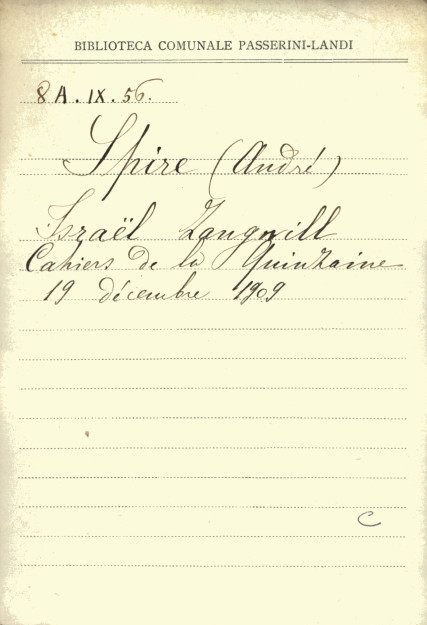 BIBLIOTECA COMUNALE PASSERINI-LANDI
8A.IX.56.
Spire (André)
Israël Zangwill
Cahiers de la Quinzaine
19 décembre 1909
C